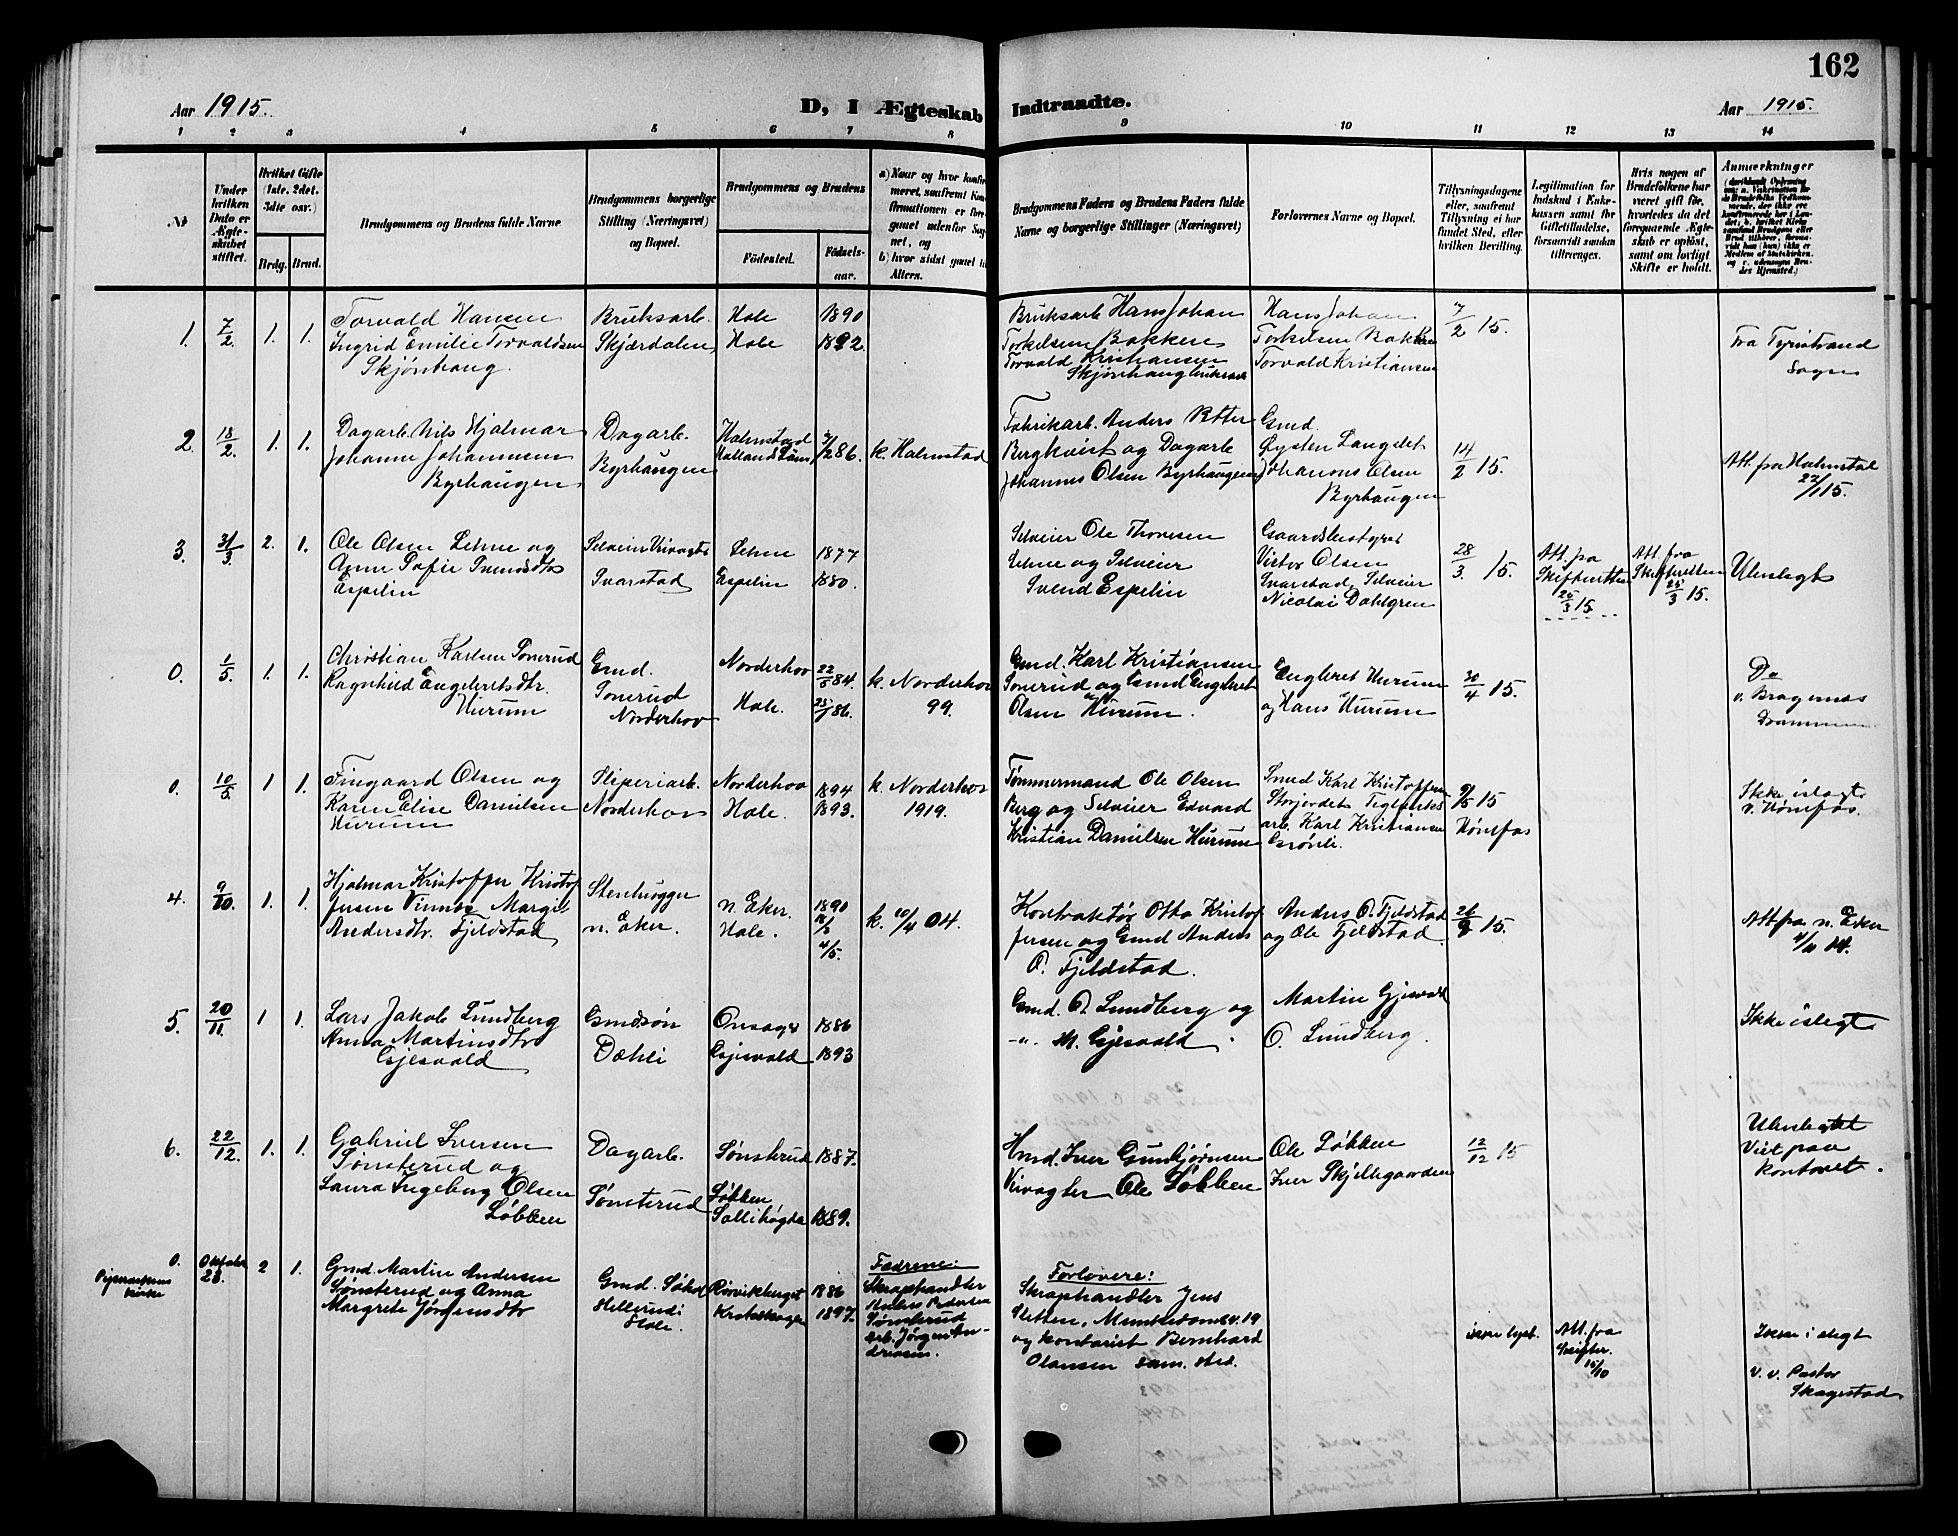 162
Aar 1915.
D, I Ægteskab Indtraadte.
Aar 1915.
1 2 3 4 5 6 7 8 9 10 11 12 13 14
No
Under hvilken Dato er Ægteskabet stiftet.
Hvilket Gifte (1ste, 2det, 3die osv.)
Brdg. Brud.
Brudgommens og Brudens fulde Navne
Brudgommens borgerlige Stilling (Næringsvei) og Bopæl.
Brudgommens og Brudens
Födested.
Födselsaar.
Brudgommens Faders og Brudens Faders fulde Navne og borgerlige Stillinger (Næringsvei)
Forlovernes Navne og Bopæl.
Tillysningsdagene eller, saafremt Tillysning ei har fundet Sted, efter hvilken Bevilling.
Legitimation for Indskud i Enkekassen samt for Giftetilladelse, forsaavidt saadan tiltrænges.
Hvis nogen af Brudefolkene har været gift før, hvorledes da det foregaaende Ægteskab er oplöst, samt om lovligt Skifte er holdt.
Anmærkninger
1. 7/2. 1. 1.
Torvald Hansen
Ingrid Emilie Torvaldsen
Skjønhaug.
Bruksarb.
Skjærdalen
Hole 1890
Hole 1892.
Bruksarb Hans Johan
Torkelsen Bakken
Torvald Kristiansen
Skjønhaug bruksarb
Hans Johan
Torkelsen Bakken
Torvald Kristiansen
7/2 15.
Fra Tyristrand
Sogn
2. 18/2. 1. 1.
Dagarb. Nils Hjalmar
Johanne Johannesen
Byrhaugen
Dagarb.
Byrhaugen
Halmstad
Halland Län
86.
k. Halmstad
Fabrikarb. Anders Petter
Bergkvist og Dagarb
Johannes Olsen Byrhaugen
Gmd.
Øysten Langslet
Johannes Olsen
Byrhaugen
14/2 15.
Att. fra Halmstad
22/1 15.
3. 31/3. 2. 1.
Ole Olsen Lehne og
Anne Sofie Svendsdtr
Espelin
Svarstad
Lehne 1877
Espelin 1880.
Selveier Ole Thoresen
Lehne og Selveier
Svend Espelin
Gaardsbestyrer
Victor Olsen
Svarstad, Selveier
Nicolai Dahlgren
28/3. 15.
Att. fra
Skifteretten
25/3 15.
Att. fra
Skifteretten
25/3 15.
Ubeslegt
0. 1/5. 1. 1.
Christian Karlsen Sonerud
Ragnhild Engebretsdtr.
Hurum
Gmd.
Sonerud
Norderhov
Norderhov 84.
Hole. 86.
k. Norderhov
99.
Gmd. Karl Kristiansen
Sonerud og Gmd Engebret
Olsen Hurum.
Engebret Hurum
og Hans Hurum
4 15.
Do
v. Bragernes
Drammen
0. 10/5. 1 1.
Fingaard Olsen og
Karen Elise Danielsen
Hurum
Sliperiarb.
Norderhov
Norderhov 1894
Hole. 1893.
k. Norderhov
1919.
Tømmermand Ole Olsen
Berg og Selveier Edvard
Kristian Danielsen Hurum
Smed Karl Kristoffersen
Storjordet Teglverks
arb. Karl Kristiansen
9/5 15
Hönefos
Ikke i slegt
v. Hönefos.
4. 9/10. 1. 1.
Hjalmar Kristoffer Kristof
fersen Vinnes Margit
Andersdtr. Fjeldstad
Stenhugger
n. Eker.
n. Eker. 1890
Hole.
k. 04.
Kontraktør Otto Kristof
fersen og Gmd Anders
O. Fjeldstad.
Anders O. Fjeldstad
og Ole Fjeldstad
26/9 15.
Att fra n. Eker
5. 20/11. 1 1.
Lars Jakob Lundberg
Anna Martinsdtr
Gjesvald
Gmdsøn
Dæhli
Onsager 1886
Gjesvald 1893
Gmd. O. Lundberg og
-"- M. Gjesvald.
Martin Gjesvald
O. Lundberg.
Ikke i slegt
6. 22/12. 1. 1.
Gabriel Iversen
Sønsterud og
Laura Ingeborg Olsen
Løbben
Dagarb.
Sønsterud
Sønsterud 1887.
Løbben
Sollihøgda 1889.
Hmd. Iver Gunbjørnsen
Vivagter Ole Løbben
Ole Løbben
Iver Skjellegaarden
12/12 15
Ubeslegtet
Viet paa
kontoret.
0. Oktober
28. 2 1.
Gmd. Martin Andersen
Sønsterud og Anna
Margrete Jørgensdtr
Gmd.
Hole.
Rørvikberget 1886
Krokskogen 1897.
Fædrene:
Skraphandler
Anders Pedersen
Sønsterud
arb. Jørgen An-
driasen.
Forlovere:
Skraphandler Jens
Sletten, Munkedamsv. 19
og kontorist Bernhard
Olausen sam. sted.
ikke lyst.
Att. fra
15/10
Ikke i slegt
v. v. Pastor
Skagestad